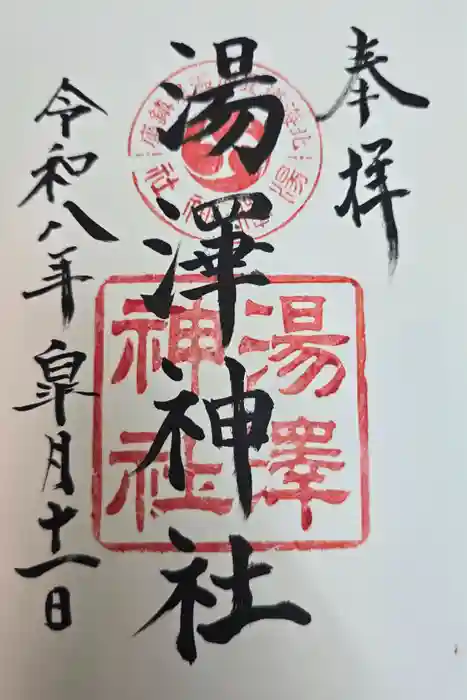 奉拝
湯澤神社
令和八年皐月十一日
湯澤
神社